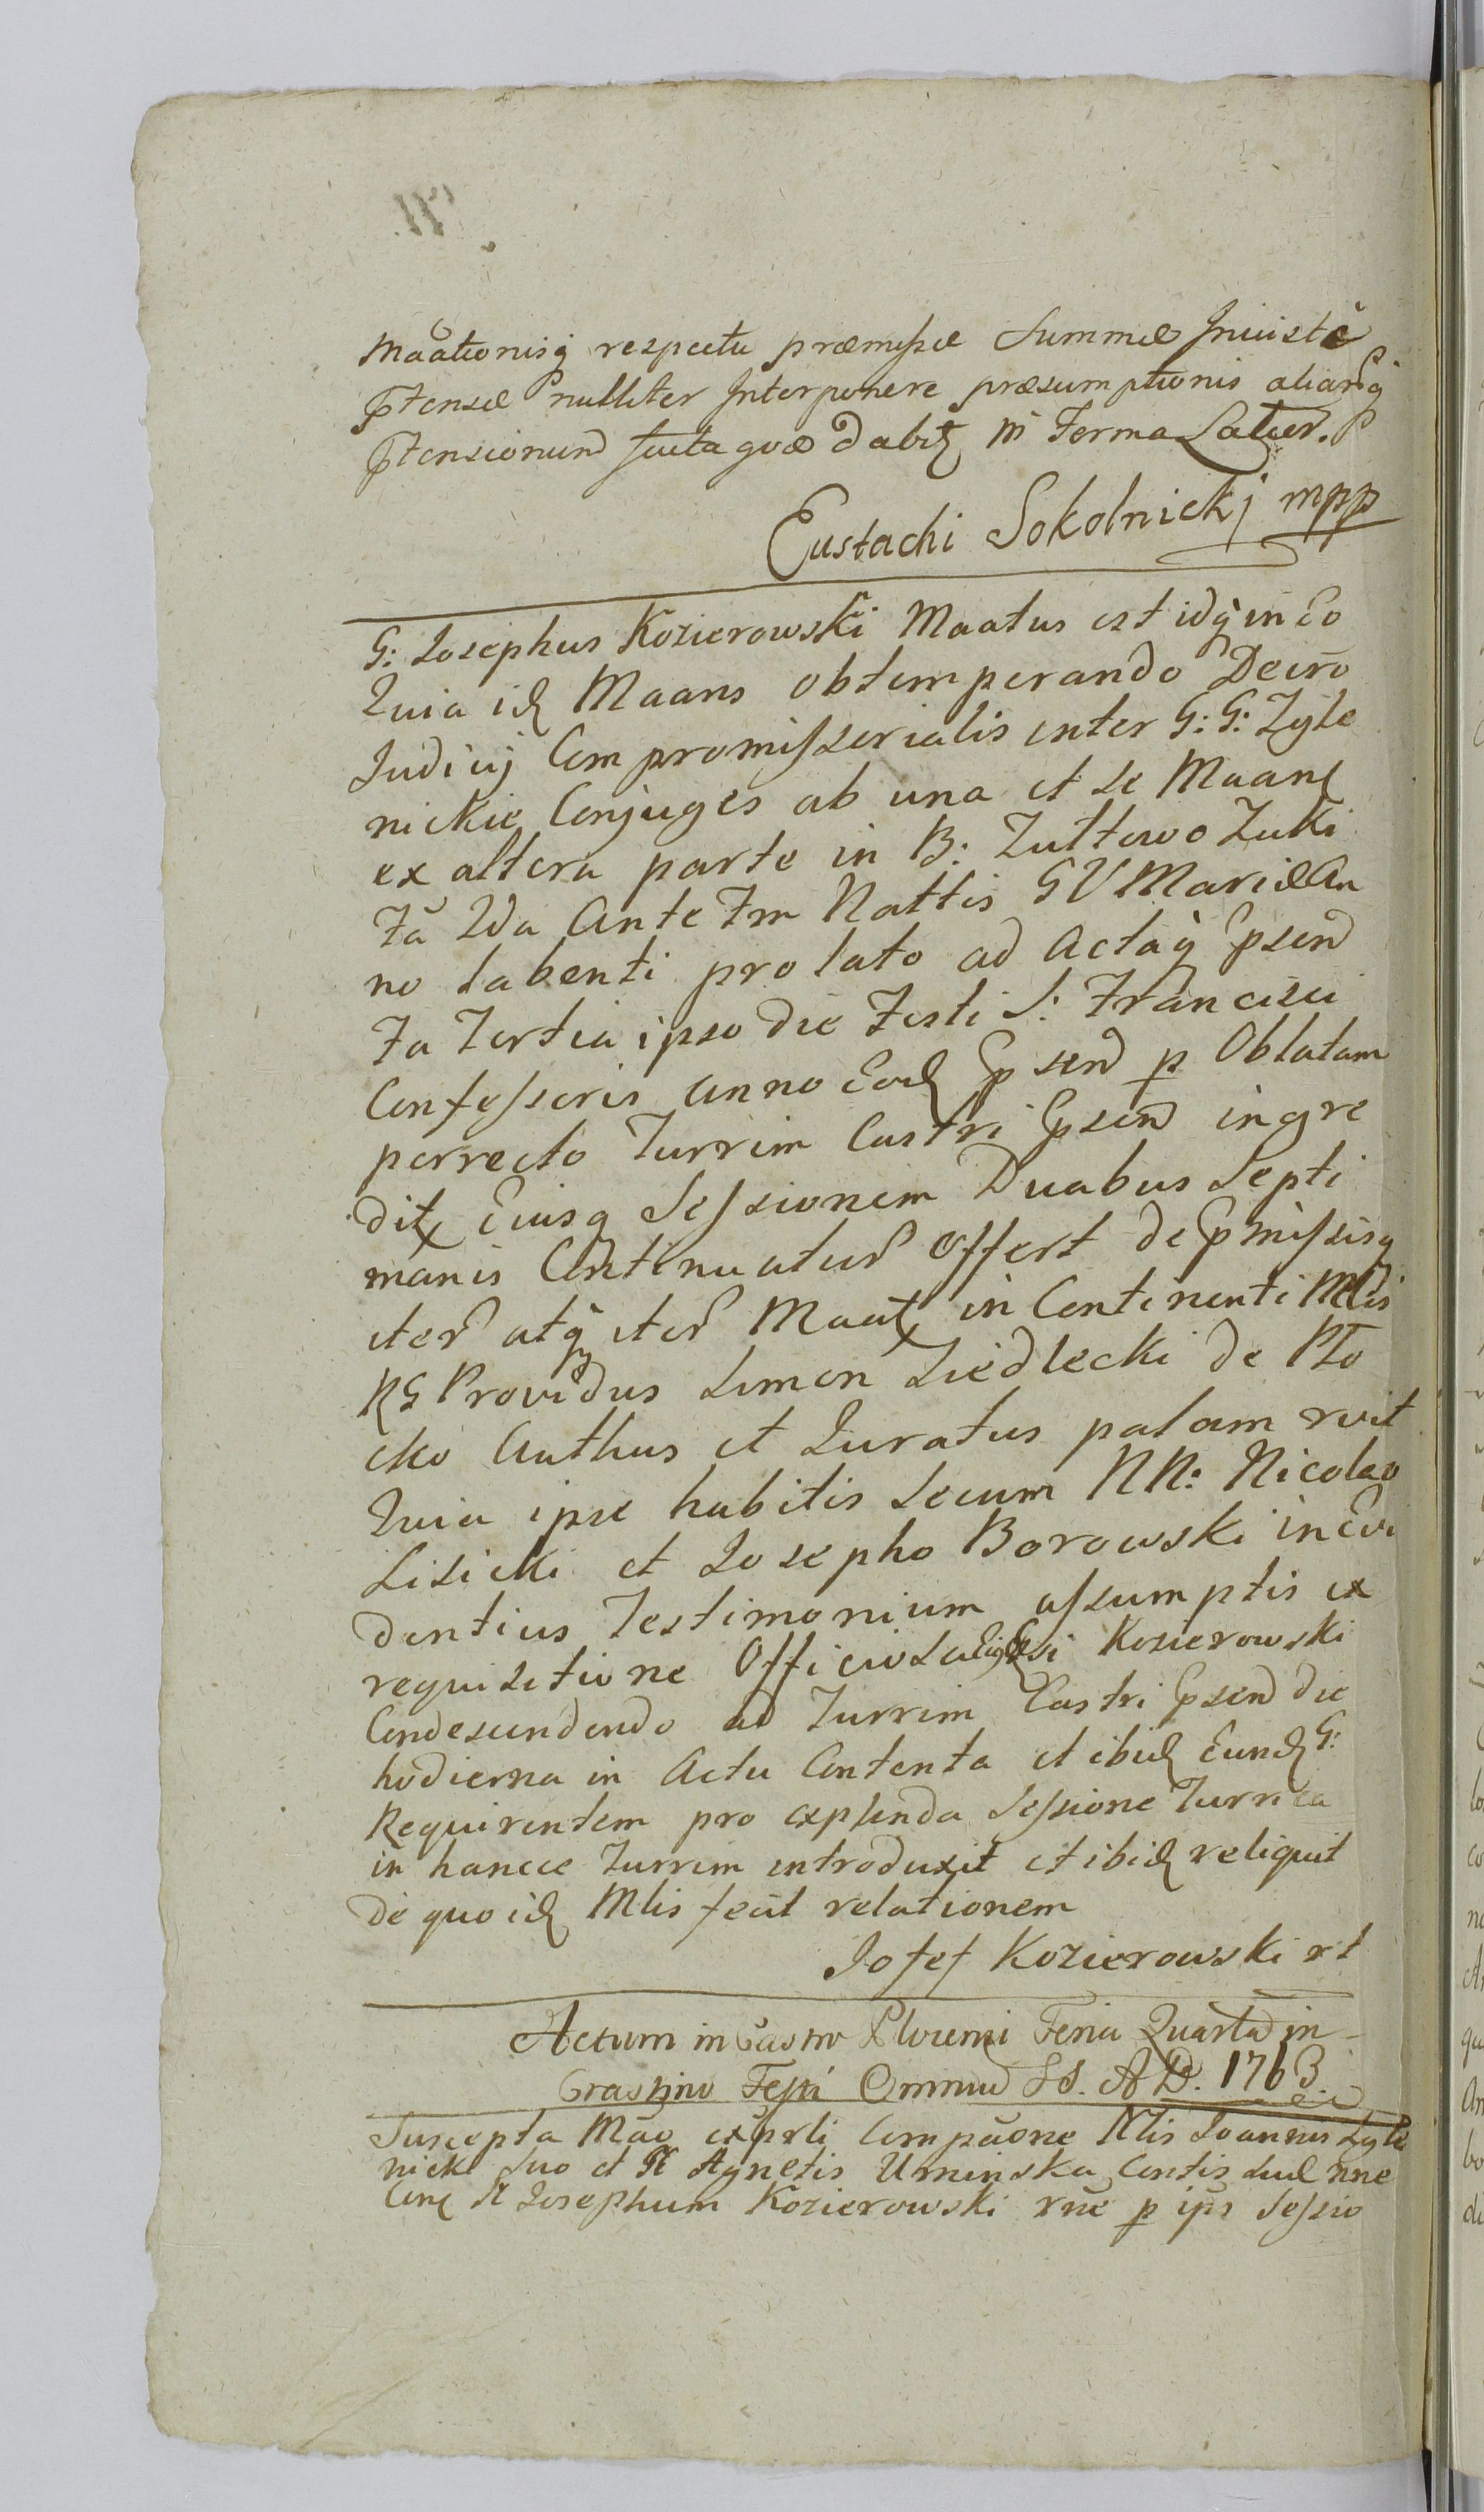 Maationisq respectu præmissæ Summæ Iniuste
ptensæ nulliter Interponere præsumptionis aliarūq
ptensionum Iuxta quæ dabit in Forma Latior.
Eustachi Sokolnickj mpp
G: Josephus Kozierowski Maatus est idq in Eo
Quia id Maans obtemperando Decro
Judicij Compromissorialis inter G: G: Zyle
nickie Conjuges ab una et se Maant
ex altera parte in B: Zultowo Zuki
Fa 2da Ante Fm Nattis GV Mariæ An
no labenti prolato ad Actaq psend
Fa Tertia ipso die Festi S: Francisci
Confessoris anno Eod psend p Oblatam
perrecto Turrim Castri psend ingre
dit Eiusq Sessionem Duabus Septi
manis Continuatur offert de pmissisq
iter atq iter Maat in Continenti Mlis
RG Providus Simon Siedlecki de Plo
cko Authus et Juratus palam rvit
Quia ipse habitis Secum NN: Nicolao
Lisicki et Josepho Borowski in Evi
dentius Testimonium assumptis ex
requisitione Officiosa Kozierowski
Condescendendo ad Turrim Castri psend die
hodierna in Actu Contenta et ibid Eund G:
Requirentem pro explenda Sessione Turrea
in hancce Turrim introduxit et ibid reliquit
de quo id Mlis fecit relationem
Josef Kozierowski rt
Actum in Castro Plocensi Feria Quarta in
Crastino Festi Omniu SS. A D. 1763
Suscepta Mao expxli Compaone Nlis Joannis Zyle
nicki Suo et N Agnetis Uminska Contis Suæ nne
Cont N Josephum Kozierowski rne p ips Sessio